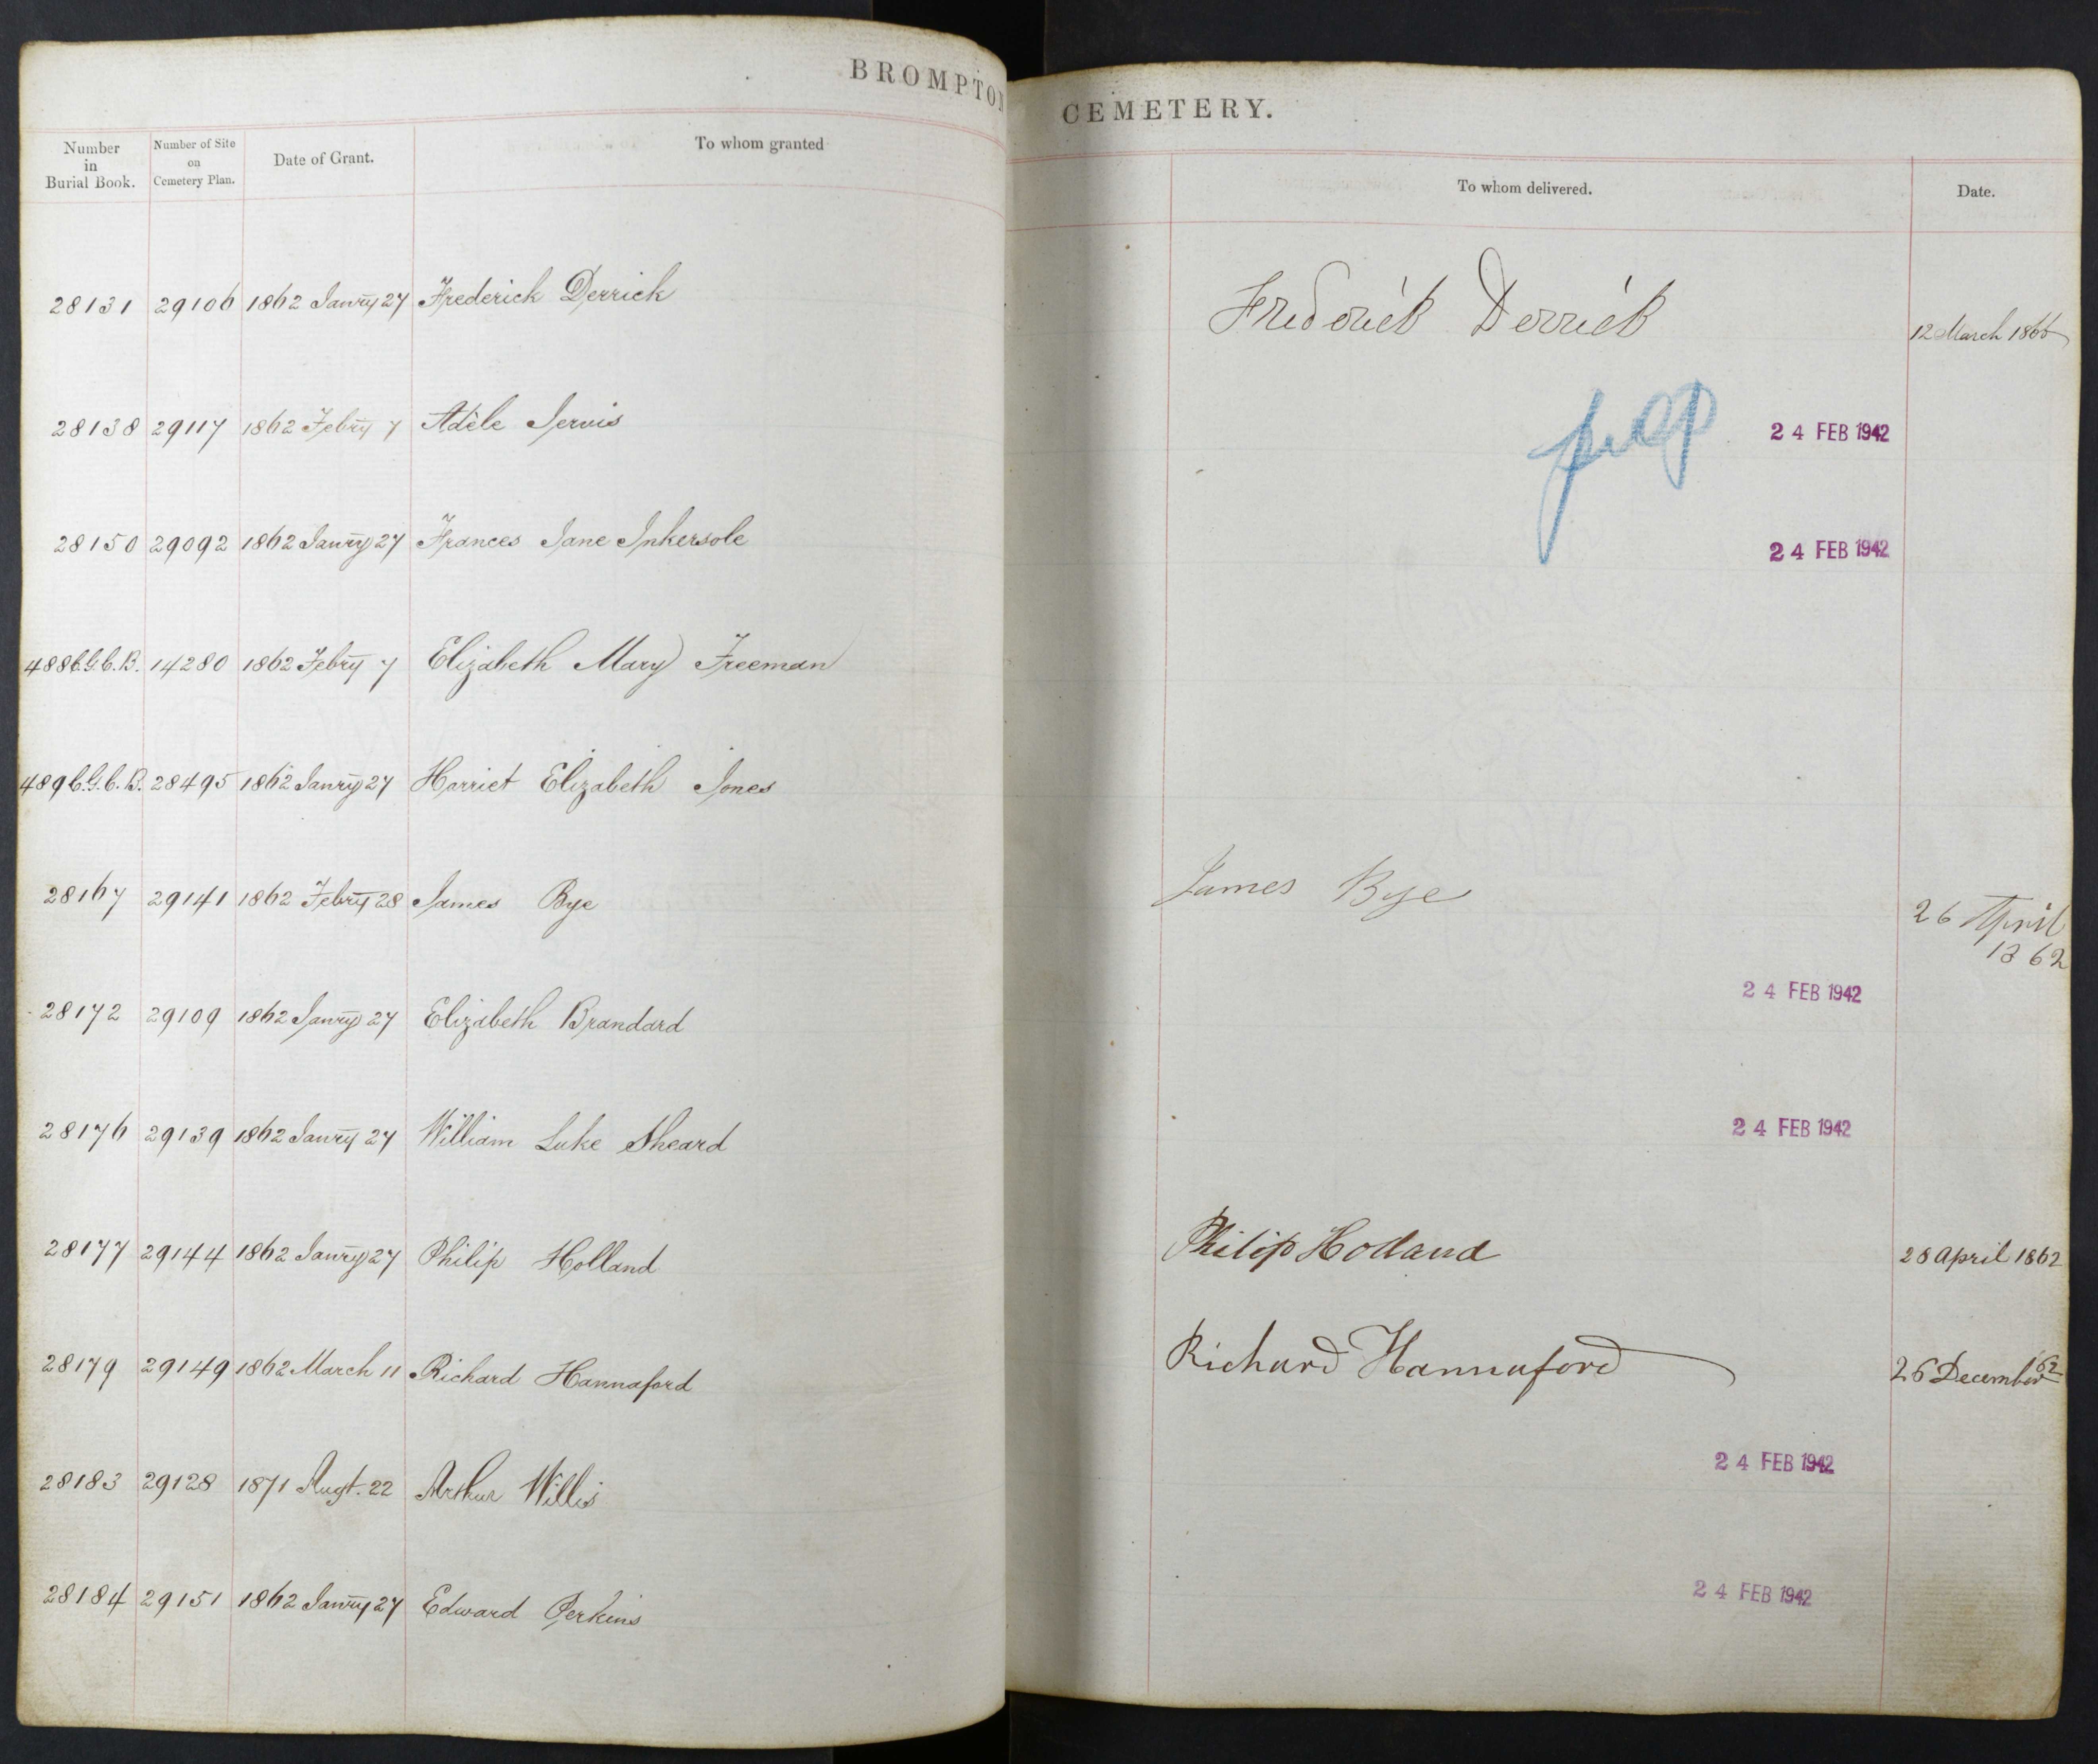 BROMPTON CEMETERY.
Number in Burial Book. Number of Site on Cemetery Plan. Date of Grant. To whom granted To whom delivered. Date.
28131 29106 1862 Janry 27 Frederick Derrick Frederick Derrick 12 March 1866
28138 29117 1862 Febry 7 Adèle Jervis 24 FEB 1942
28150 29092 1862 Janry 27 Frances Jane Inkersole 24 FEB 1942
488 C.G.C.B. 14280 1862 Febry 7 Elizabeth Mary Freeman
489 C.G.C.B. 28495 1862 Janry 27 Harriet Elizabeth Jones
28167 29141 1862 Febry 28 James Bye James Bye 26 April 1862
28172 29109 1862 Janry 27 Elizabeth Brandard 24 FEB 1942
28176 29139 1862 Janry 27 William Luke Sheard 24 FEB 1942
28177 29144 1862 Janry 27 Philip Holland Philip Holland 28 April 1862
28179 29149 1862 March 11 Richard Hannaford Richard Hannaford 26 December 62
28183 29128 1871 Augt. 22 Arthur Willis 24 FEB 1942
28184 29151 1862 Janry 27 Edward Perkins 24 FEB 1942